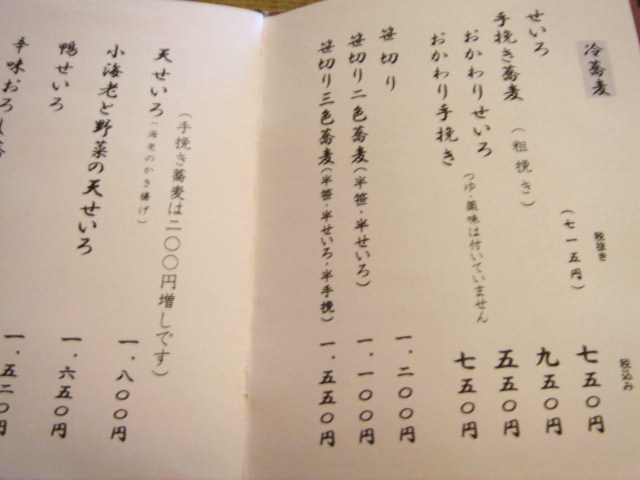 冷蕎麦
税抜き
税込み
せいろ（七一五円）七五〇円
手挽き蕎麦（粗挽き）九五〇円
おかわりせいろ つゆ・薬味は付いていません 五五〇円
おかわり手挽き 七五〇円
笹切り 一.二〇〇円
笹切り二色蕎麦（半笹・半せいろ）一.一〇〇円
笹切り三色蕎麦（半笹・半せいろ・半手挽）一.五五〇円
（手挽き蕎麦は二〇〇円増しです）
天せいろ（海老のかき揚げ）一.八〇〇円
小海老と野菜の天せいろ 一.六五〇円
鴨せいろ 一.五二〇円
辛味おろし